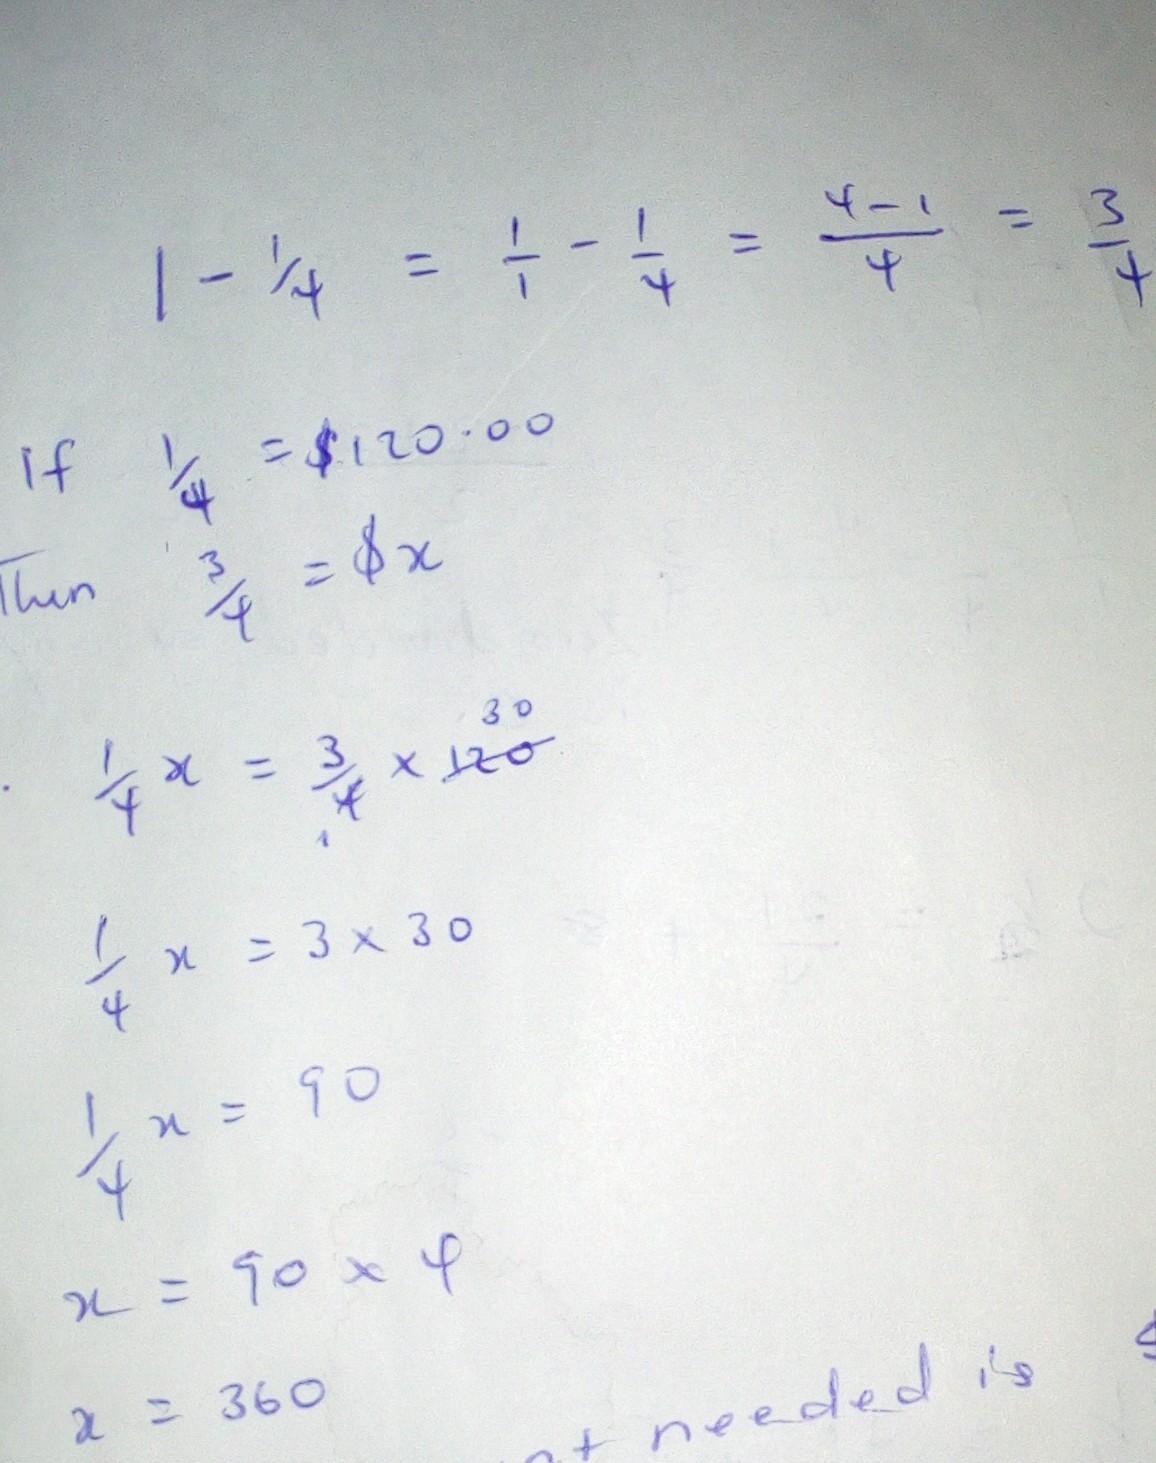 1 - 1/4 = 1/1 - 1/4 = 4-1/4 = 3/4
If 1/4 = $120.00
Then 3/4 = $x
1/4 x = 3/4 x 120 30 1
1/4 x = 3 x 30
1/4 x = 90
x = 90 x 4
x = 360
needed is $